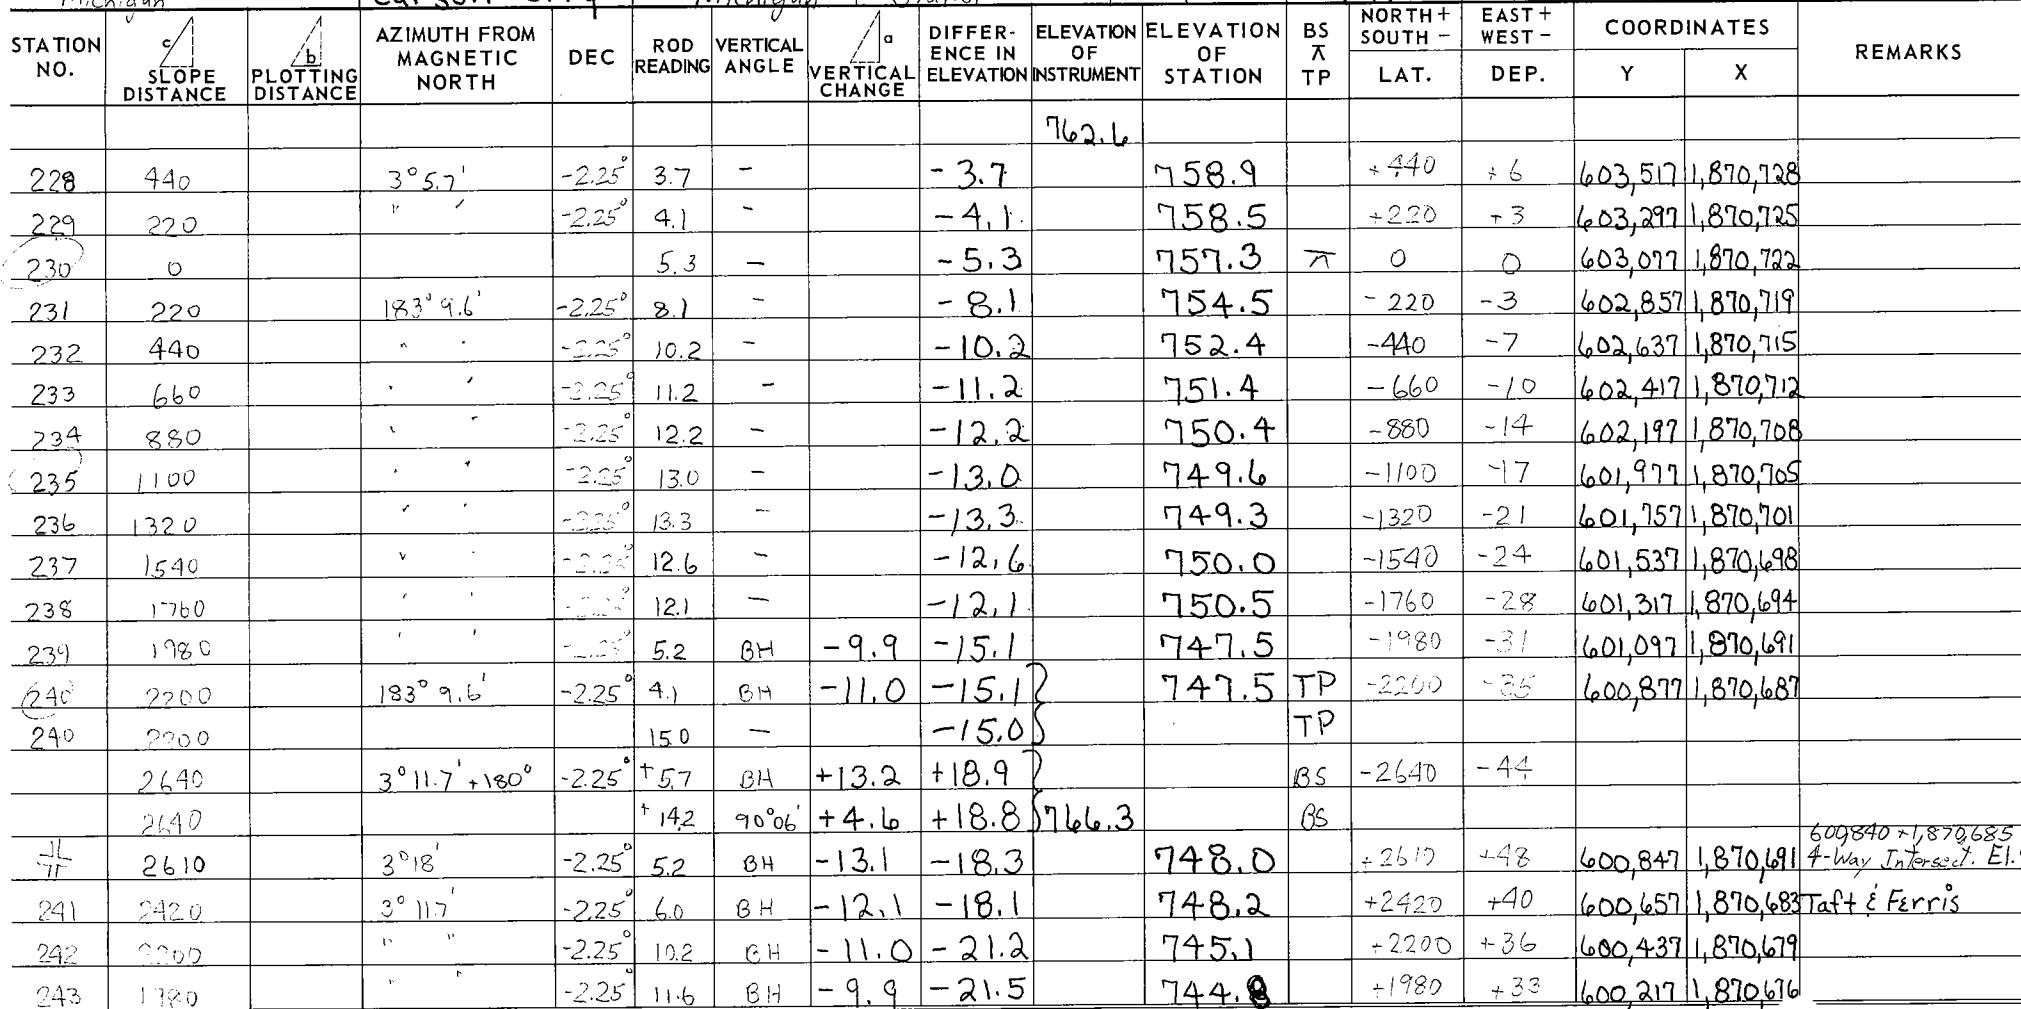 Michigan Carson City Michigan
STATION NO. c SLOPE DISTANCE b PLOTTING DISTANCE AZIMUTH FROM MAGNETIC NORTH DEC ROD READING VERTICAL ANGLE a VERTICAL CHANGE DIFFER- ENCE IN ELEVATION ELEVATION OF INSTRUMENT ELEVATION OF STATION BS ⊼ TP NORTH + SOUTH - LAT. EAST + WEST - DEP. COORDINATES Y X REMARKS
762.6
228 440 3° 5.7' -2.25° 3.7 - -3.7 758.9 +440 +6 603,517 1,870,728
229 220 " ' -2.25° 4.1 - -4.1 758.5 +220 +3 603,297 1,870,725
230 0 5.3 - -5.3 757.3 ⊼ 0 0 603,077 1,870,722
231 220 183° 9.6' -2.25° 8.1 - -8.1 754.5 -220 -3 602,857 1,870,719
232 440 " ' -2.25° 10.2 - -10.2 752.4 -440 -7 602,637 1,870,715
233 660 ' ' -2.25° 11.2 - -11.2 751.4 -660 -10 602,417 1,870,712
234 880 ' " -2.25° 12.2 - -12.2 750.4 -880 -14 602,197 1,870,708
235 1100 ' ' -2.25° 13.0 - -13.0 749.6 -1100 -17 601,977 1,870,705
236 1320 ' ' -2.25° 13.3 - -13.3 749.3 -1320 -21 601,757 1,870,701
237 1540 " ' -2.25° 12.6 - -12.6 750.0 -1540 -24 601,537 1,870,698
238 1760 ' ' -2.25° 12.1 - -12.1 750.5 -1760 -28 601,317 1,870,694
239 1980 ' ' -2.25° 5.2 BH -9.9 -15.1 747.5 -1980 -31 601,097 1,870,691
240 2200 183° 9.6' -2.25° 4.1 BH -11.0 -15.1 747.5 TP -2200 -35 600,877 1,870,687
240 2200 15.0 - -15.0 TP
2640 3° 11.7' +180° -2.25° +5.7 BH +13.2 +18.9 BS -2640 -44
2640 +14.2 90°06' +4.6 +18.8 766.3 BS
600,840 + 1,870,685
2610 3° 18' -2.25° 5.2 BH -13.1 -18.3 748.0 +2610 +48 600,847 1,870,691 4-Way Intersect. El.
241 2420 3° 11.7' -2.25° 6.0 BH -12.1 -18.1 748.2 +2420 +40 600,657 1,870,683 Taft & Ferris
242 2200 " " -2.25° 10.2 BH -11.0 -21.2 745.1 +2200 +36 600,437 1,870,679
243 1980 " " -2.25 11.6 BH -9.9 -21.5 744.8 +1980 +33 600,217 1,870,676